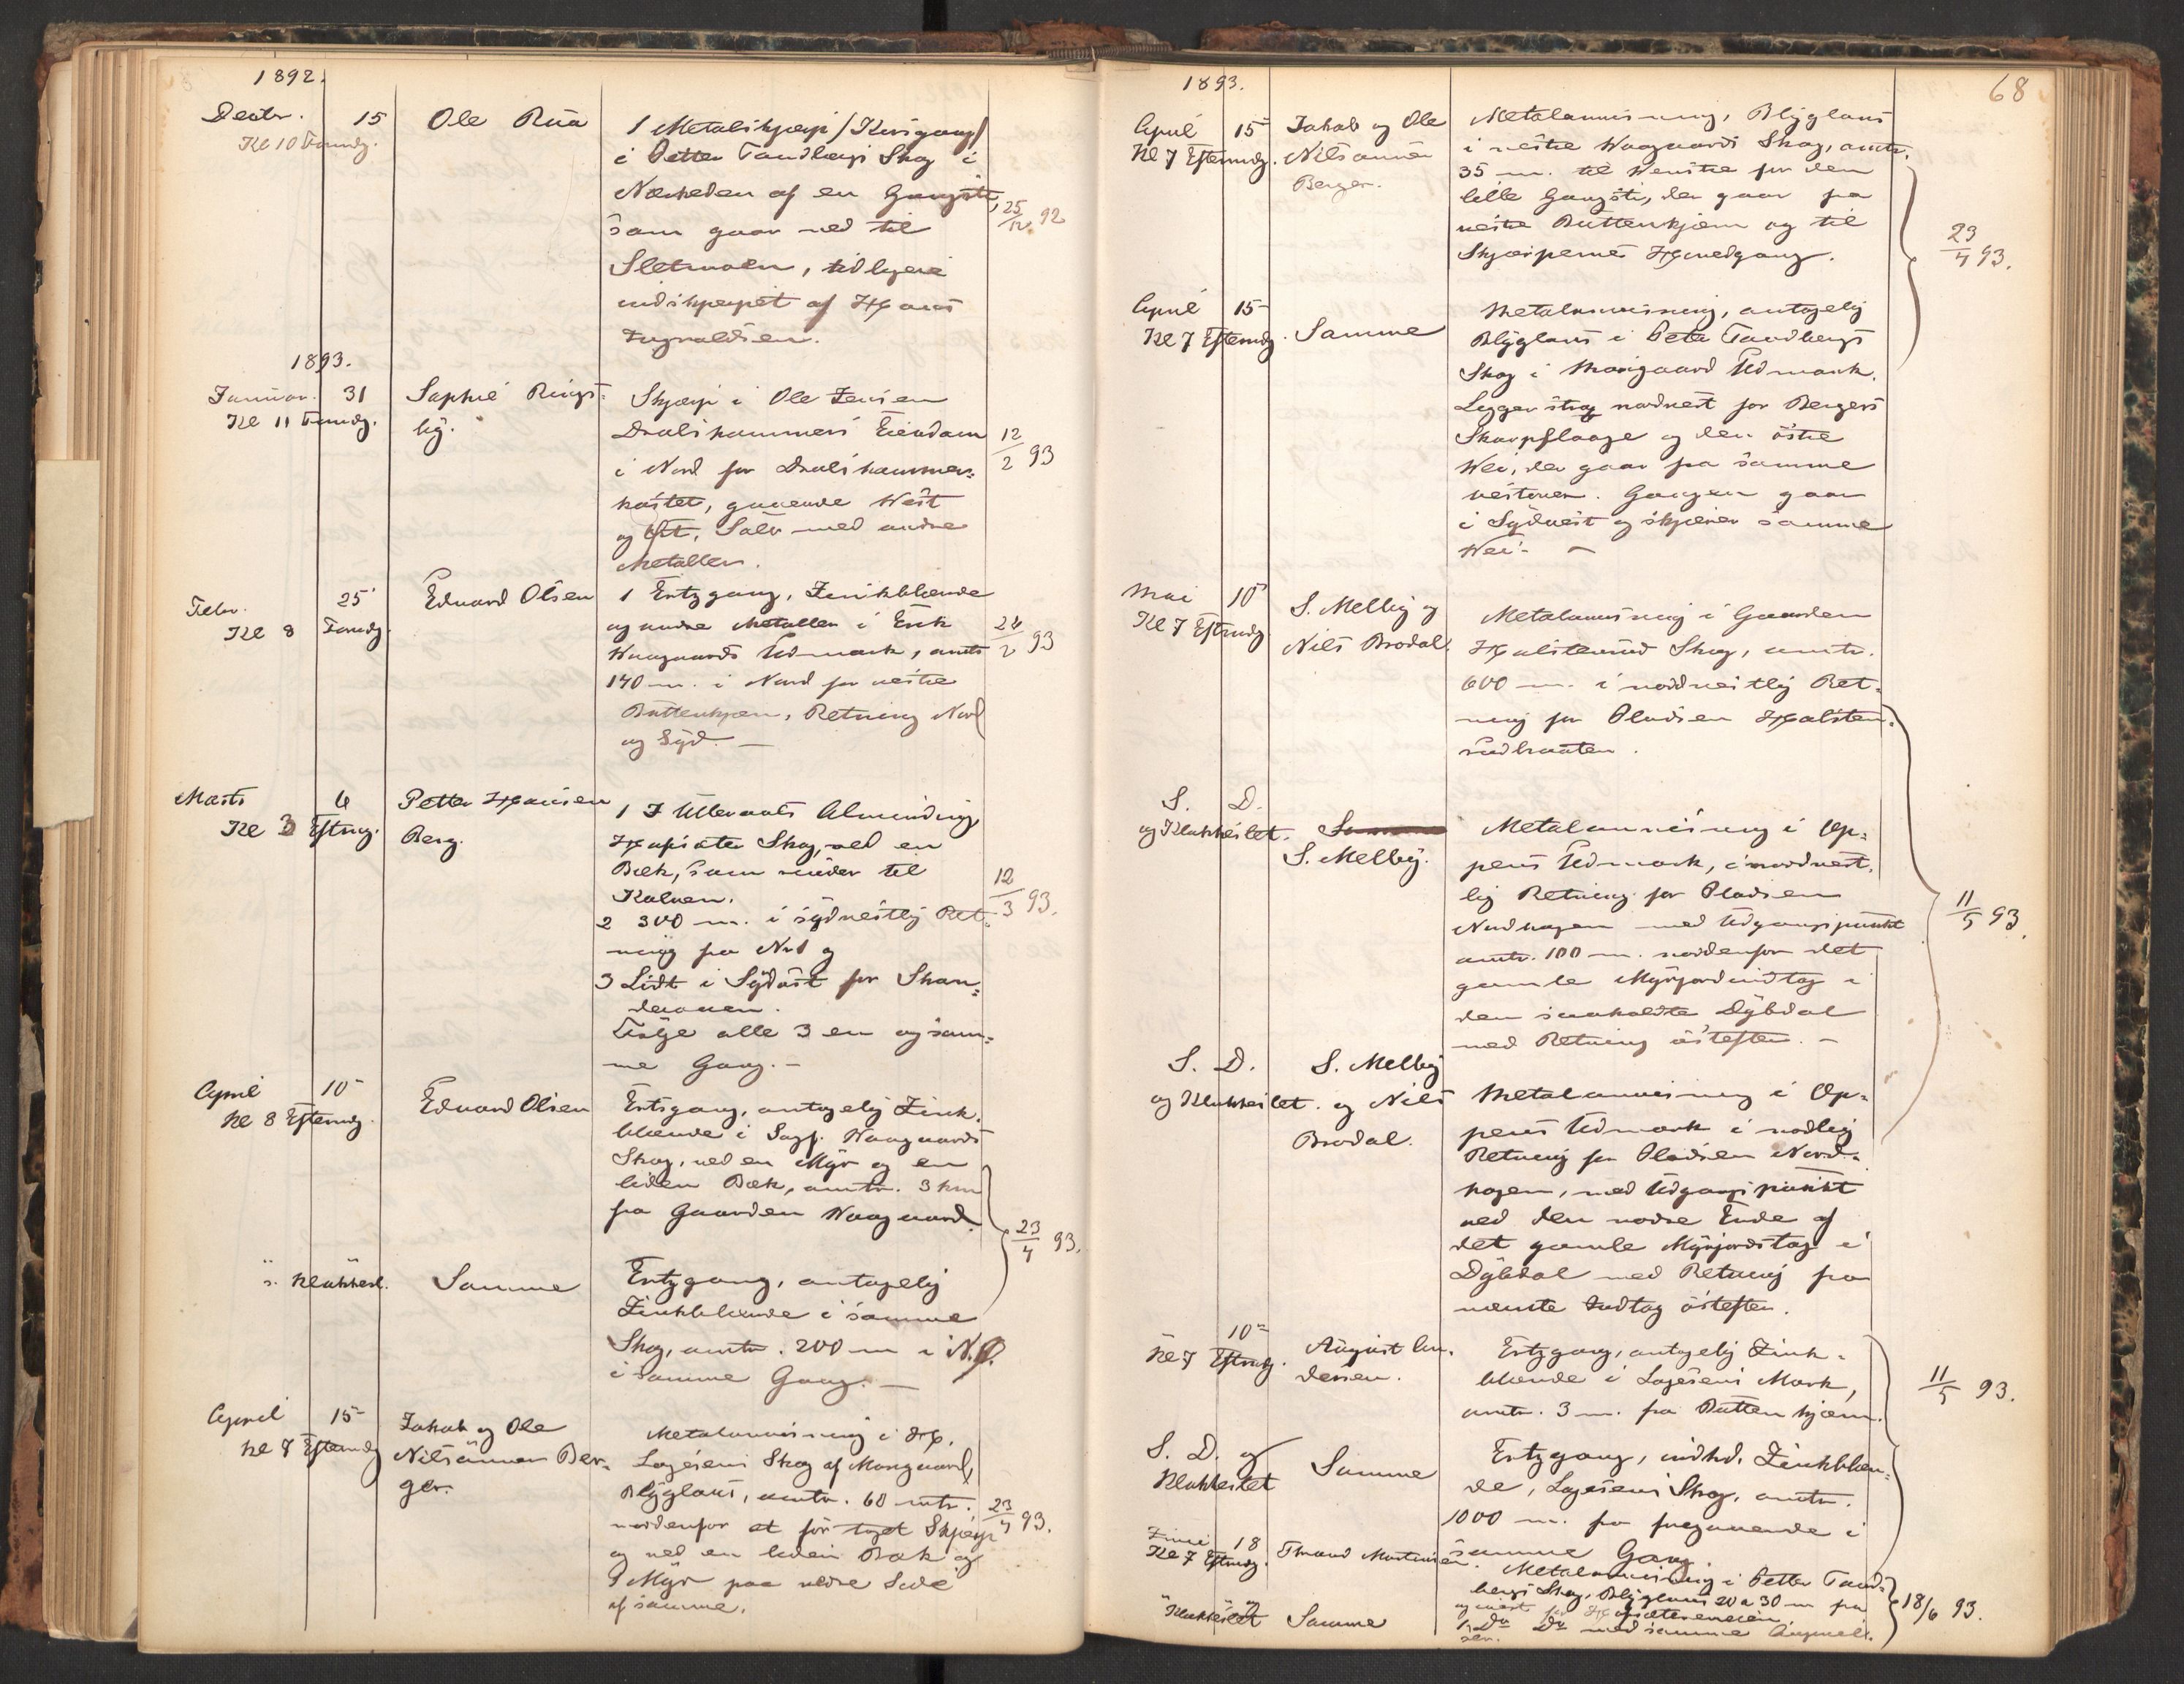 1892.
Decbr. 15 Ole Rua
Kl 10 Formdg.
1 Metalskjærp /Kisgang/
i Petter Tandbergs Skog i
Nærheden af en Gangsti,
som gaar ned til
Sletmoen, tidligere
indskjærpet af Hans
Ingvaldsen.
25/12 92
1893.
Januar 31 Sophie Rings-
Kl 11 Formdg. by.
Skjærp i Ole Jensen
Dralshammers Eiendom
i Nord for Dralshammer-
gaaende Vest
og Øst, Sølv med andre
Metaller.
12/2 93
Febr. 25 Edvard Olsen
Kl 8 Formdg.
1 Ertzgang, Zinkblænde
og andre Metaller i Erik
Waagaards Udmark, amtr
140 m. i Nord for vestre
Buttentjern, Retning Nord
og Syd. —
26/2 93
Marts 6 Petter Hansen
Kl 3 Eftmg. Berg.
1 I Ullevaals Alminding,
Skog, ved en
Bæk, som rinder til
Kalven.
2 300 m. i sydvestlig Ret-
ning fra No 1 og
3 Lidt i Sydøst for

Følge alle 3 en og sam-
me Gang. —
12/3 93.
April 10 Edvard Olsen
Kl 8 Eftermdg.
Ertsgang, antagelig Zink-
blænde i Sagf. Waagaards
Skog, ved en Myr og en
liden Bæk, amtr. 3 km
fra Gaarden Waagaard.
23/4 93.
s. Klokkesl. Samme
Ertzgang, antagelig
Zinkblænde i samme
Skog, amtr. 200 m i N.Ø.
i samme Gang. —
April 15 Jakob og Ole
Kl 7 Eftermdg Nilsønner Ber-
ger.
Metalanvisning i
Lagesens Skog af Morigaard,
Blyglans, amtr. 60 mtr.
nordenfor et før taget Skjærp
og ved en liden Bæk og
1 Myr paa nedre Side
af samme.
23/4 93.
1893. 68
April 15 Jakob og Ole
Kl 7 Eftermdg. Nilsønner
Berger.
Metalanvisning, Blyglans
i vestre Waagaards Skog, amtr.
35 m. til Venstre for den
lille Gangsti, der gaar fra
vestre Buttentjern og til
Skjærpernes Hjemedgang.
April 15
Kl 7 Eftermdg. Samme
Metalanvisning, antagelig
Blyglans i Peter Tandbergs
Skog i Morigaard Udmark.
Ligger strax nordvest for Bergers
og den østre
Vei, der gaar fra samme
vestover. Gangen gaar
i Sydvest og skjærer samme
Vei. —
23/4 93.
Mai 10 S. Melby og
Kl 7 Eftrmdg Nils Brodal.
Metalanvisning i Gaarden
Halstensrud Skog, amtr.
600 m. i nordvestlig Ret-
ning for Pladsen Halsten-
rudbraaten.
S. D.
og Klokkeslet. S. Melby.
Metalanvisning i Op-
pens Udmark, i nordvest-
lig Retning for Pladsen
Nordhagen med Udgangspunkt
amtr. 100 m. nordenfor det
gamle Myrjordindtag i
den saakaldte Dybdal
med Retning østefter. —
11/5 93.
S. D. S. Melby
og Klokkeslet. og Nils
Brodal.
Metalanvisning i Op-
pens Udmark i nordlig
Retning for Pladsen Nord-
hagen, med Udgangspunkt
ved den nordre Ende af
det gamle Myrjordstag i
Dybdal med Retning fra
nævnte Indtag østefter.
10 August An-
Kl 7 Eftrmdg. dersen.
Ertzgang, antagelig Zink-
blænde i Lagesens Mark,
amtr. 3 m. fra Buttentjern.
11/5 93.
S. D. og
Klokkeslet Samme
Ertzgang, indhd. Zinkblæn-
de, Lagesens Skog, amtr.
1000 m. fra foregaaende i
samme Gang.
Juni 18
Kl 7 Eftrmdg. Thrond Martinsen
Metalanvisning i Petter Tand-
bergs Skog, Blyglans 20 a 30 m fra
Klokkeslet Samme
1 Do Do med samme
18/6 93.